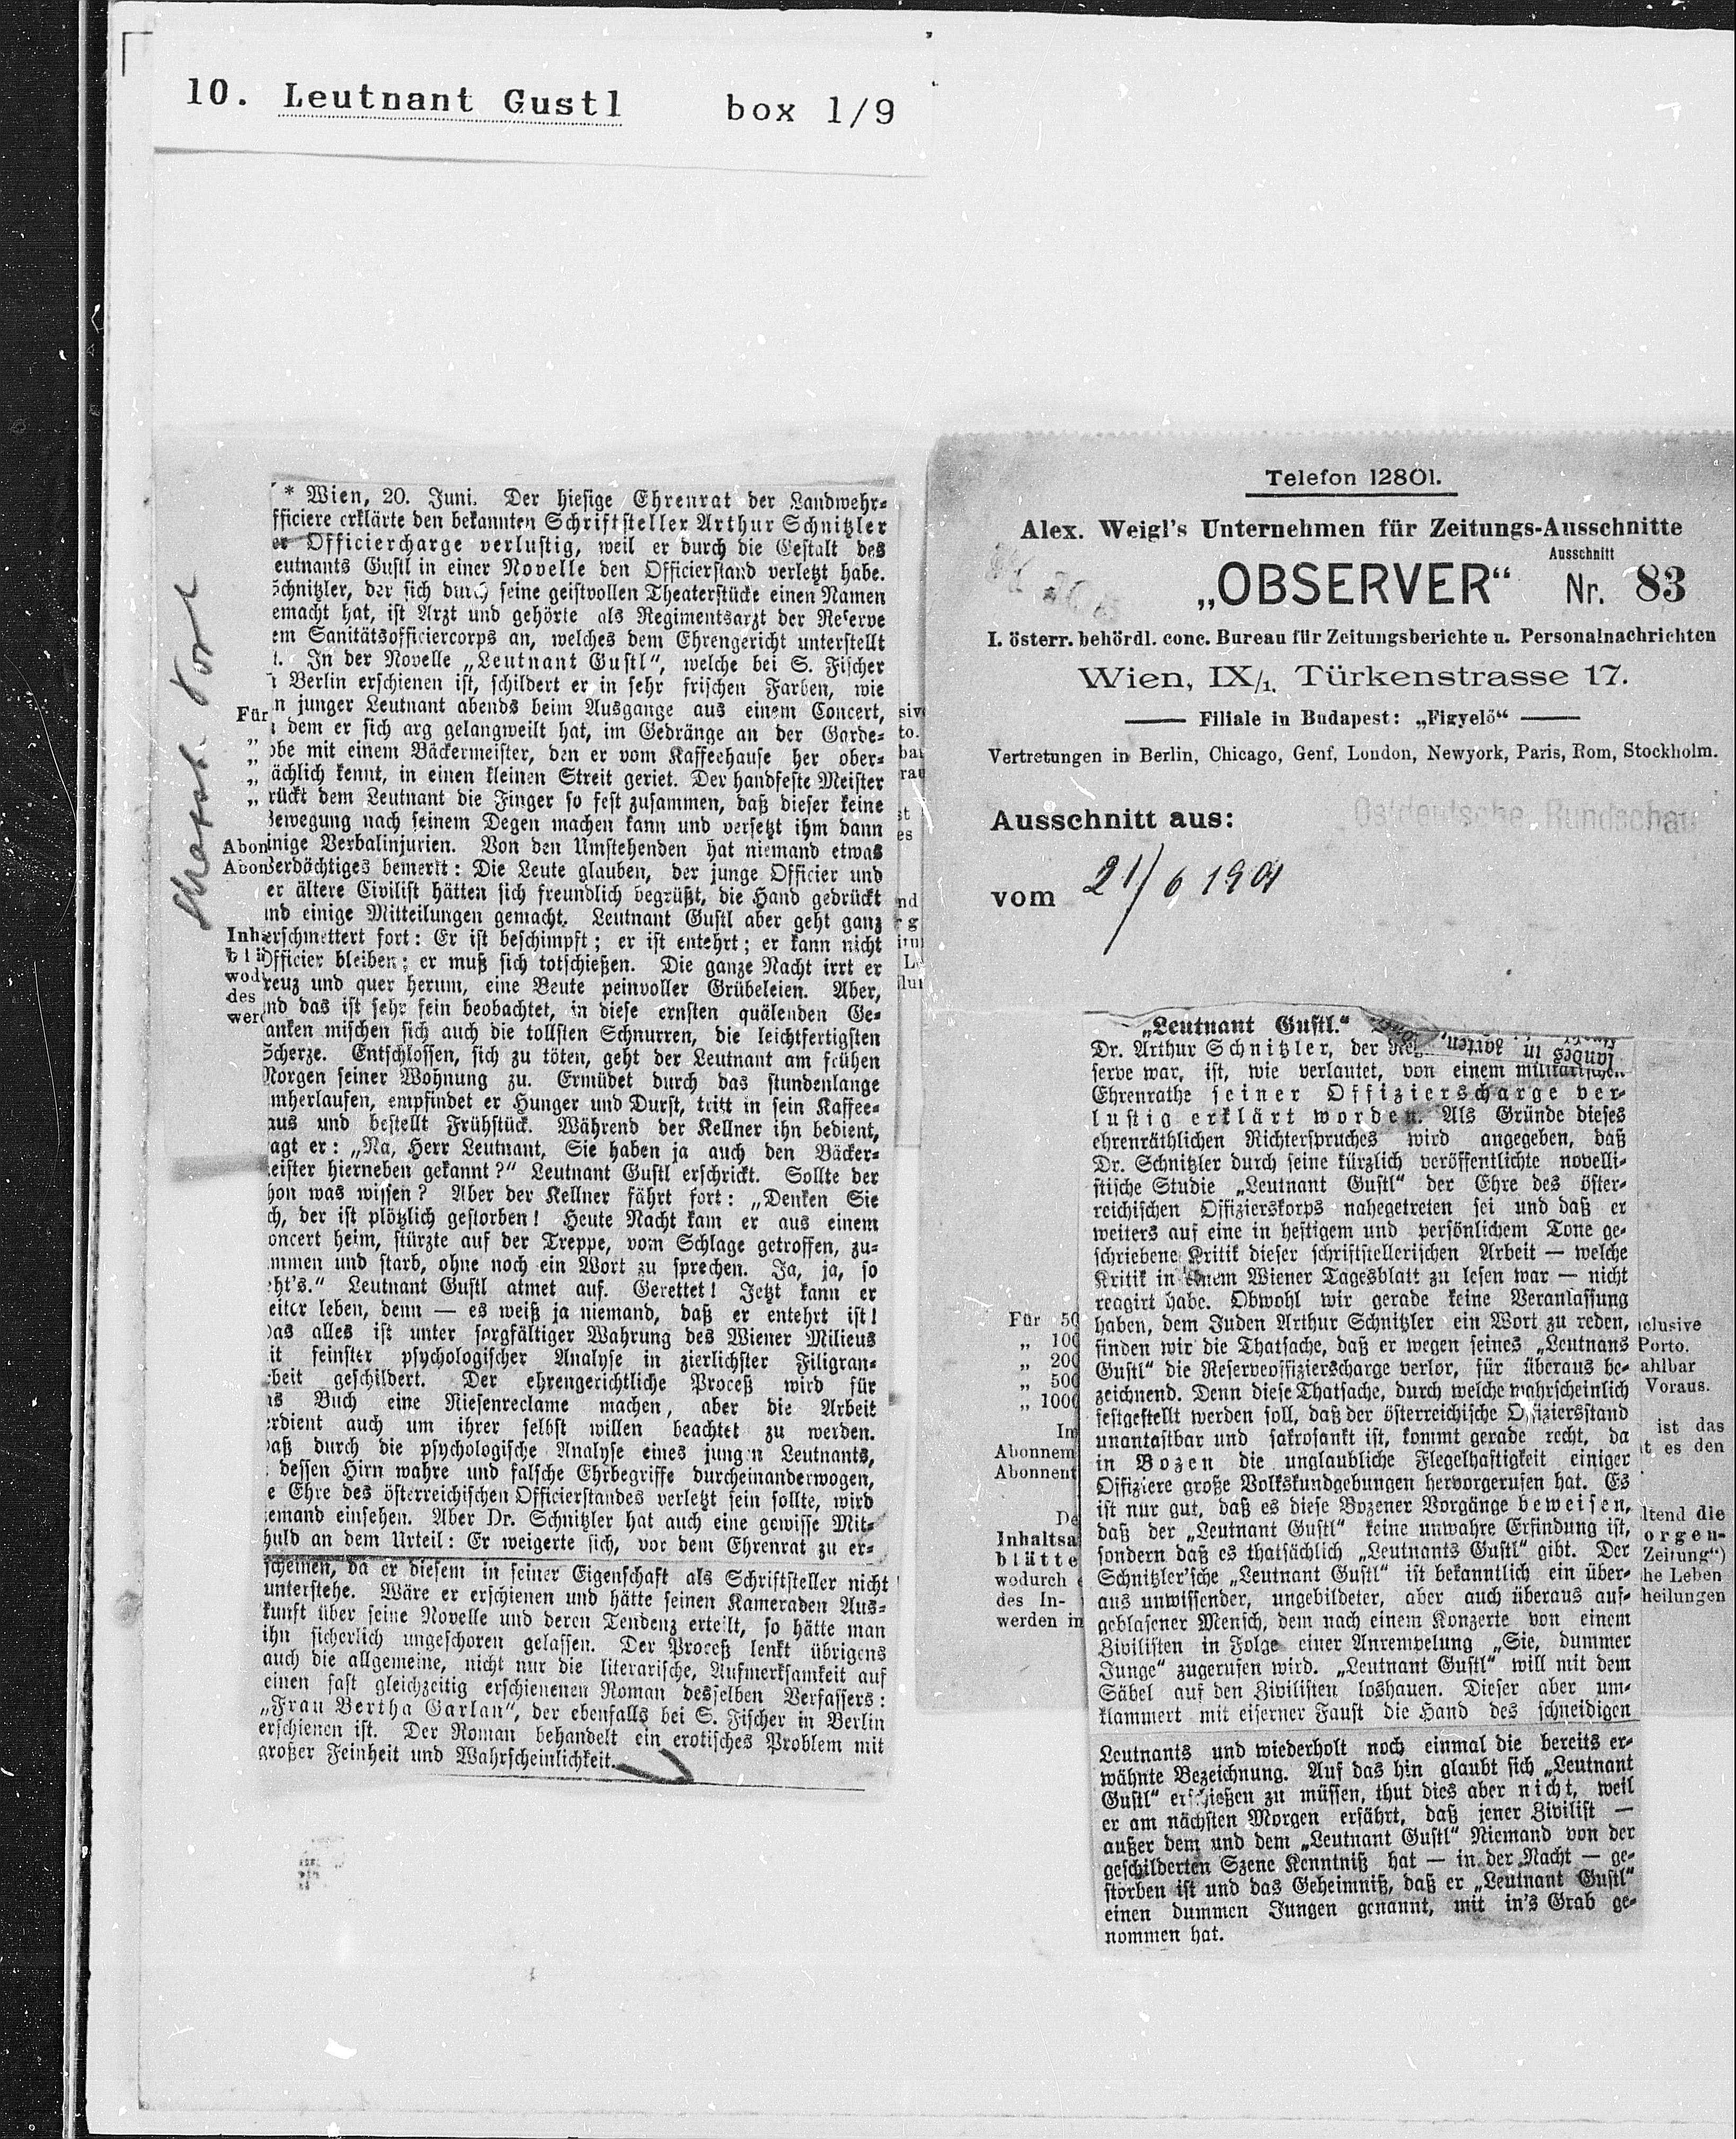 10. Leutnant Gustl box 1/9
* Wien, 20. Juni. Der hiesige Ehrenrat der Landwehr-
fficiere erklärte den bekannten Schriftsteller Arthur Schnitzler
er Officiercharge verlustig, weil er durch die Gestalt des
eutnants Gustl in einer Novelle den Officierstand verletzt habe.
Schnitzler, der sich durch seine geistvollen Theaterstücke einen Namen
emacht hat, ist Arzt und gehörte als Regimentsarzt der Reserve
em Sanitätsofficiercorps an, welches dem Ehrengericht unterstellt
t. In der Novelle „Leutnant Gustl“, welche bei S. Fischer
Berlin erschienen ist, schildert er in sehr frischen Farben, wie
n junger Leutnant abends beim Ausgange aus einem Concert,
dem er sich arg gelangweilt hat, im Gedränge an der Garde-
obe mit einem Bäckermeister, den er vom Kaffeehause her ober-
ächlich kennt, in einen kleinen Streit geriet. Der handfeste Meister
rückt dem Leutnant die Finger so fest zusammen, daß dieser keine
Bewegung nach seinem Degen machen kann und versetzt ihm dann
inige Verbalinjurien. Von den Umstehenden hat niemand etwas
Verdächtiges bemerkt: Die Leute glauben, der junge Officier und
er ältere Civilist hätten sich freundlich begrüßt, die Hand gedrückt
und einige Mitteilungen gemacht. Leutnant Gustl aber geht ganz
erschmettert fort: Er ist beschimpft; er ist entehrt; er kann nicht
Officier bleiben; er muß sich totschießen. Die ganze Nacht irrt er
reuz und quer herum, eine Beute peinvoller Grübeleien. Aber,
und das ist sehr fein beobachtet, in diese ernsten quälenden Ge-
anken mischen sich auch die tollsten Schnurren, die leichtfertigsten
Scherze. Entschlossen, sich zu töten, geht der Leutnant am frühen
Morgen seiner Wohnung zu. Ermüdet durch das stundenlange
mherlaufen, empfindet er Hunger und Durst, tritt in sein Kaffee-
aus und bestellt Frühstück. Während der Kellner ihn bedient,
agt er: „Na, Herr Leutnant, Sie haben ja auch den Bäcker-
eister hierneben gekannt?“ Leutnant Gustl erschrickt. Sollte der
hon was wissen? Aber der Kellner fährt fort: „Denken Sie
ch, der ist plötzlich gestorben! Heute Nacht kam er aus einem
oncert heim, stürzte auf der Treppe, vom Schlage getroffen, zu-
mmen und starb, ohne noch ein Wort zu sprechen. Ja, ja, so
eht's.“ Leutnant Gustl atmet auf. Gerettet! Jetzt kann er
eiter leben, denn — es weiß ja niemand, daß er entehrt ist!
Das alles ist unter sorgfältiger Wahrung des Wiener Milieus
it feinster psychologischer Analyse in zierlichster Filigran-
rbeit geschildert. Der ehrengerichtliche Proceß wird für
as Buch eine Riesenreclame machen, aber die Arbeit
erdient auch um ihrer selbst willen beachtet zu werden.
Daß durch die psychologische Analyse eines jungen Leutnants,
dessen Hirn wahre und falsche Ehrbegriffe durcheinanderwogen,
e Ehre des österreichischen Officierstandes verletzt sein sollte, wird
iemand einsehen. Aber Dr. Schnitzler hat auch eine gewisse Mit-
huld an dem Urteil: Er weigerte sich, vor dem Ehrenrat zu er-
scheinen, da er diesem in seiner Eigenschaft als Schriftsteller nicht
unterstehe. Wäre er erschienen und hätte seinen Kameraden Aus-
kunft über seine Novelle und deren Tendenz erteilt, so hätte man
ihn sicherlich ungeschoren gelassen. Der Proceß lenkt übrigens
auch die allgemeine, nicht nur die literarische, Aufmerksamkeit auf
einen fast gleichzeitig erschienenen Roman desselben Verfassers:
„Frau Bertha Garlan“, der ebenfalls bei S. Fischer in Berlin
erschienen ist. Der Roman behandelt ein erotisches Problem mit
großer Feinheit und Wahrscheinlichkeit.
Für
„
„
„
„
Abon
Abon
Inh
blä
wod
des
werd
Telefon 12801.
Alex. Weigl's Unternehmen für Zeitungs-Ausschnitte
Ausschnitt
„OBSERVER“ Nr. 83
I. österr. behördl. conc. Bureau für Zeitungsberichte u. Personalnachrichten
Wien, IX/1, Türkenstrasse 17.
Filiale in Budapest: „Figyelő“
Vertretungen in Berlin, Chicago, Genf, London, Newyork, Paris, Rom, Stockholm.
Ausschnitt aus: Ostdeutsche Rundschau
vom 21/6 1901
„Leutnant Gustl.“
Dr. Arthur Schnitzler, der
serve war, ist, wie verlautet, von einem militärischen
Ehrenrathe seiner Offizierscharge ver-
lustig erklärt worden. Als Gründe dieses
ehrenräthlichen Richterspruches wird angegeben, daß
Dr. Schnitzler durch seine kürzlich veröffentlichte novelli-
stische Studie „Leutnant Gustl“ der Ehre des öster-
reichischen Offizierskorps nahegetreten sei und daß er
weiters auf eine in heftigem und persönlichem Tone ge-
schriebene Kritik dieser schriftstellerischen Arbeit — welche
Kritik in einem Wiener Tagesblatt zu lesen war — nicht
reagirt habe. Obwohl wir gerade keine Veranlassung
haben, dem Juden Arthur Schnitzler ein Wort zu reden,
finden wir die Thatsache, daß er wegen seines „Leutnans
Gustl“ die Reserveoffizierscharge verlor, für überaus be-
zeichnend. Denn diese Thatsache, durch welche wahrscheinlich
festgestellt werden soll, daß der österreichische Offiziersstand
unantastbar und sakrosankt ist, kommt gerade recht, da
in Bozen die unglaubliche Flegelhaftigkeit einiger
Offiziere große Volkskundgebungen hervorgerufen hat. Es
ist nur gut, daß es diese Bozener Vorgänge beweisen,
daß der „Leutnant Gustl“ keine unwahre Erfindung ist,
sondern daß es thatsächlich „Leutnants Gustl“ gibt. Der
Schnitzler'sche „Leutnant Gustl“ ist bekanntlich ein über-
aus unwissender, ungebildeter, aber auch überaus auf-
geblasener Mensch, dem nach einem Konzerte von einem
Zivilisten in Folge einer Anrempelung „Sie, dummer
Junge“ zugerufen wird. „Leutnant Gustl“ will mit dem
Säbel auf den Zivilisten loshauen. Dieser aber um-
klammert mit eiserner Faust die Hand des schneidigen
Leutnants und wiederholt noch einmal die bereits er-
wähnte Bezeichnung. Auf das hin glaubt sich „Leutnant
Gustl“ erschießen zu müssen, thut dies aber nicht, weil
er am nächsten Morgen erfährt, daß jener Zivilist —
außer dem und dem „Leutnant Gustl“ Niemand von der
geschilderten Szene Kenntniß hat — in der Nacht — ge-
storben ist und das Geheimniß, daß er „Leutnant Gustl“
einen dummen Jungen genannt, mit in's Grab ge-
nommen hat.
Für 50
„ 100
„ 200
„ 500
„ 1000
Im
Abonnem
Abonnent
De
Inhaltsa
blätte
wodurch
des In-
werden in
clusive
Porto.
ahlbar
Voraus.
ist das
t es den
ltend die
orgen-
Zeitung“)
he Leben
heilungen